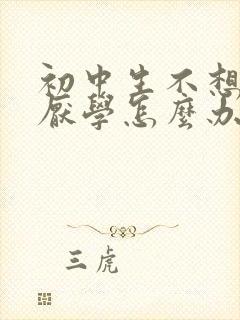 初中生不想
厭學怎麼办
三虎